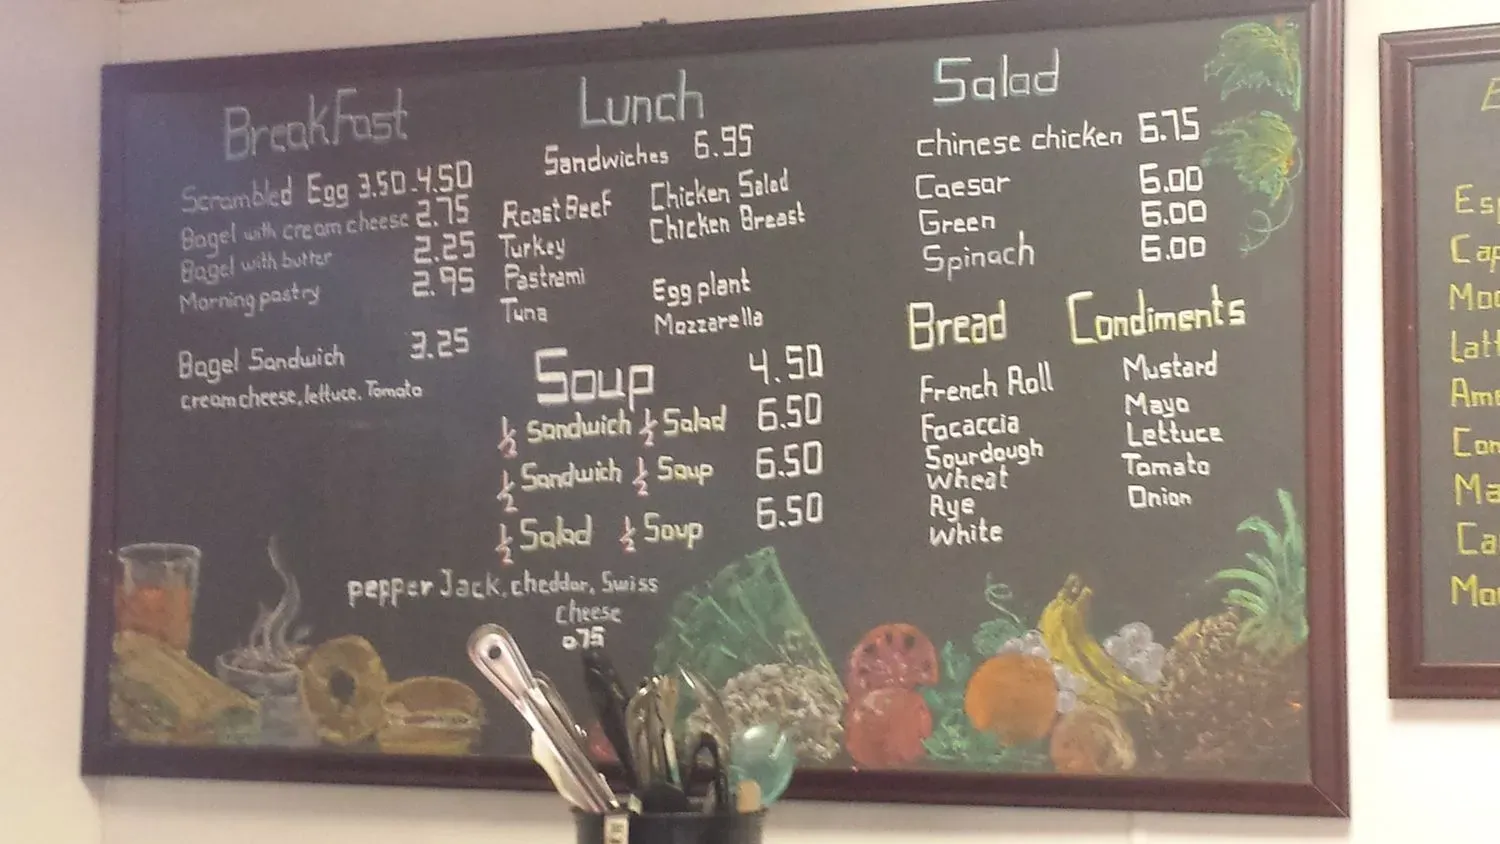 BreakFast
Scrambled Egg 3.50-4.50
Bagel with cream cheese 2.75
Bagel with butter 2.25
Morning pastry 2.95
Bagel Sandwich 3.25
cream cheese, lettuce. Tomato
Lunch
Sandwiches 6.95
Roast Beef
Turkey
Pastrami
Tuna
Chicken Salad
Chicken Breast
Egg plant
Mozzarella
Soup 4.50
½ Sandwich ½ Salad 6.50
½ Sandwich ½ Soup 6.50
½ Salad ½ Soup 6.50
pepper Jack, cheddar, Swiss
cheese
0.75
Salad
chinese chicken 6.75
Caesar 6.00
Green 6.00
Spinach 6.00
Bread
French Roll
Focaccia
Sourdough
Wheat
Rye
White
Condiments
Mustard
Mayo
Lettuce
Tomato
Onion
Esp
Cap
Moc
Latt
Ame
Con
Ma
Ca
Mo